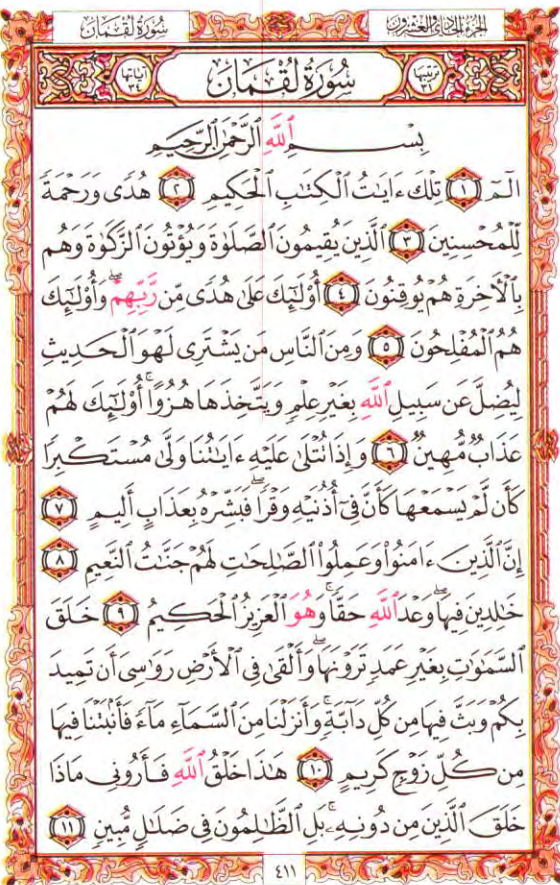 الجزء الحادي والعشرون
سُورَةُ لُقْمَان
ترتيبها ٣١
سُورَةُ لُقْمَان
آياتها ٣٤
بِسْمِ ٱللَّهِ ٱلرَّحْمَٰنِ ٱلرَّحِيمِ
الٓمٓ ١ تِلْكَ ءَايَٰتُ ٱلْكِتَٰبِ ٱلْحَكِيمِ ٢ هُدًى وَرَحْمَةً
لِّلْمُحْسِنِينَ ٣ ٱلَّذِينَ يُقِيمُونَ ٱلصَّلَوٰةَ وَيُؤْتُونَ ٱلزَّكَوٰةَ وَهُم
بِٱلْأَخِرَةِ هُمْ يُوقِنُونَ ٤ أُو۟لَٰٓئِكَ عَلَىٰ هُدًى مِّن رَّبِّهِمْ ۖ وَأُو۟لَٰٓئِكَ
هُمُ ٱلْمُفْلِحُونَ ٥ وَمِنَ ٱلنَّاسِ مَن يَشْتَرِى لَهْوَ ٱلْحَدِيثِ
لِيُضِلَّ عَن سَبِيلِ ٱللَّهِ بِغَيْرِ عِلْمٍ وَيَتَّخِذَهَا هُزُوًا ۚ أُو۟لَٰٓئِكَ لَهُمْ
عَذَابٌ مُّهِينٌ ٦ وَإِذَا تُتْلَىٰ عَلَيْهِ ءَايَٰتُنَا وَلَّىٰ مُسْتَكْبِرًا
كَأَن لَّمْ يَسْمَعْهَا كَأَنَّ فِىٓ أُذُنَيْهِ وَقْرًا ۖ فَبَشِّرْهُ بِعَذَابٍ أَلِيمٍ ٧
إِنَّ ٱلَّذِينَ ءَامَنُوا۟ وَعَمِلُوا۟ ٱلصَّٰلِحَٰتِ لَهُمْ جَنَّٰتُ ٱلنَّعِيمِ ٨
خَٰلِدِينَ فِيهَا ۖ وَعْدَ ٱللَّهِ حَقًّا ۚ وَهُوَ ٱلْعَزِيزُ ٱلْحَكِيمُ ٩ خَلَقَ
ٱلسَّمَٰوَٰتِ بِغَيْرِ عَمَدٍ تَرَوْنَهَا ۖ وَأَلْقَىٰ فِى ٱلْأَرْضِ رَوَٰسِىَ أَن تَمِيدَ
بِكُمْ وَبَثَّ فِيهَا مِن كُلِّ دَآبَّةٍ ۚ وَأَنزَلْنَا مِنَ ٱلسَّمَآءِ مَآءً فَأَنۢبَتْنَا فِيهَا
مِن كُلِّ زَوْجٍ كَرِيمٍ ١٠ هَٰذَا خَلْقُ ٱللَّهِ فَأَرُونِى مَاذَا
خَلَقَ ٱلَّذِينَ مِن دُونِهِۦ ۚ بَلِ ٱلظَّٰلِمُونَ فِى ضَلَٰلٍ مُّبِينٍ ١١
٤١١